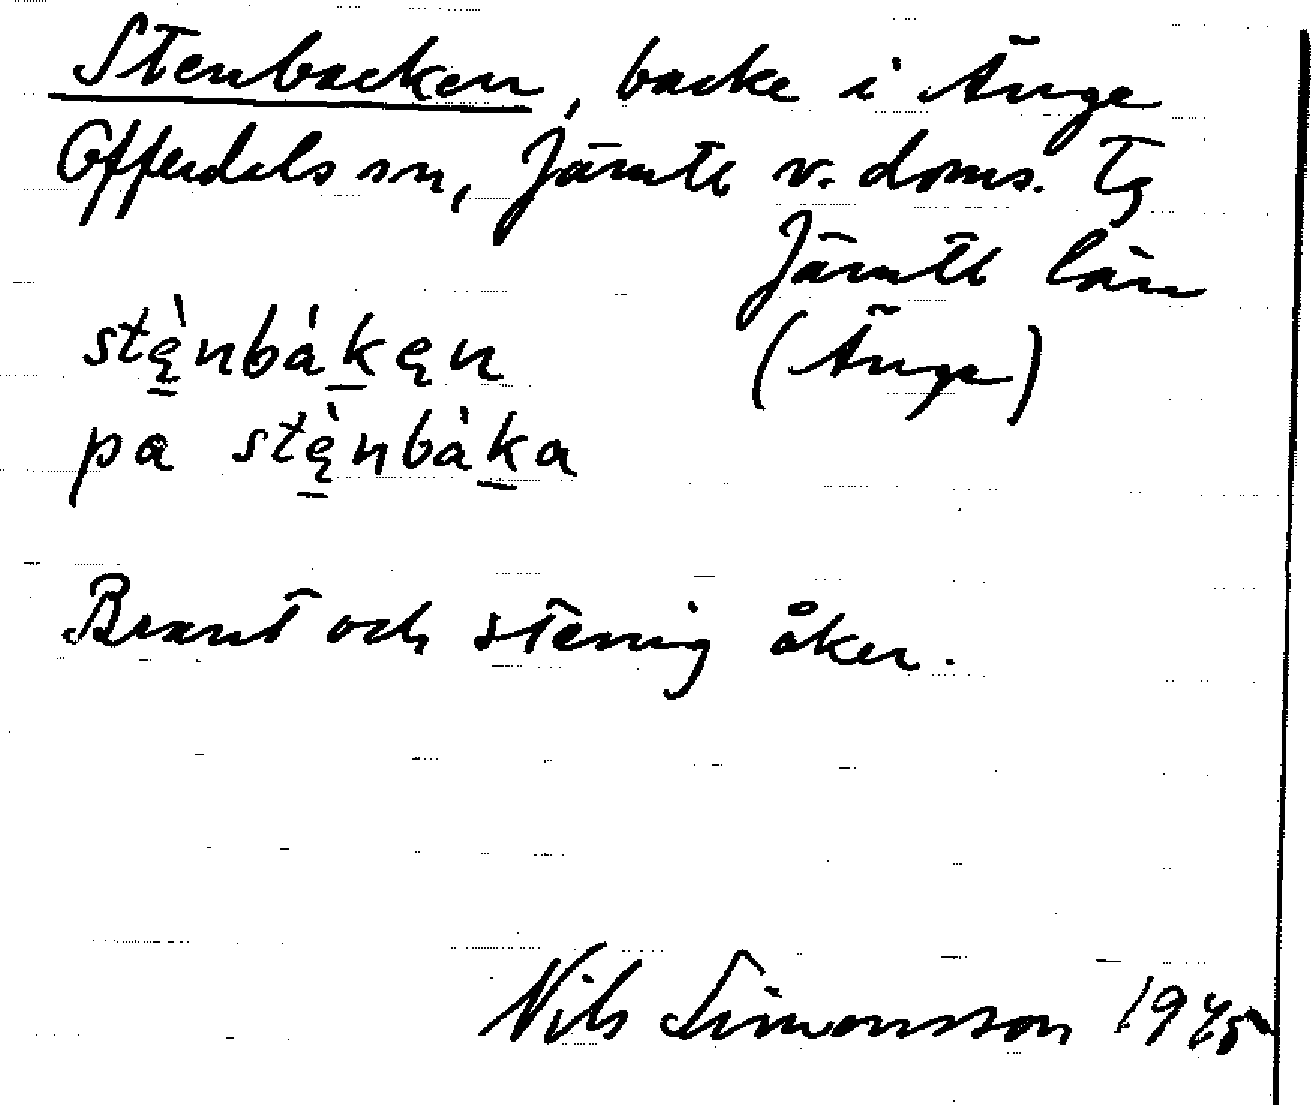 Stenbacken, backe i Änge
Offerdals sn, Jämtl v. doms. Tg
Jämtl län
stę̀nbákęn (Änge)
pa stę̀nbàka
Brant och stenig åker.
Nils Simonsson 1945